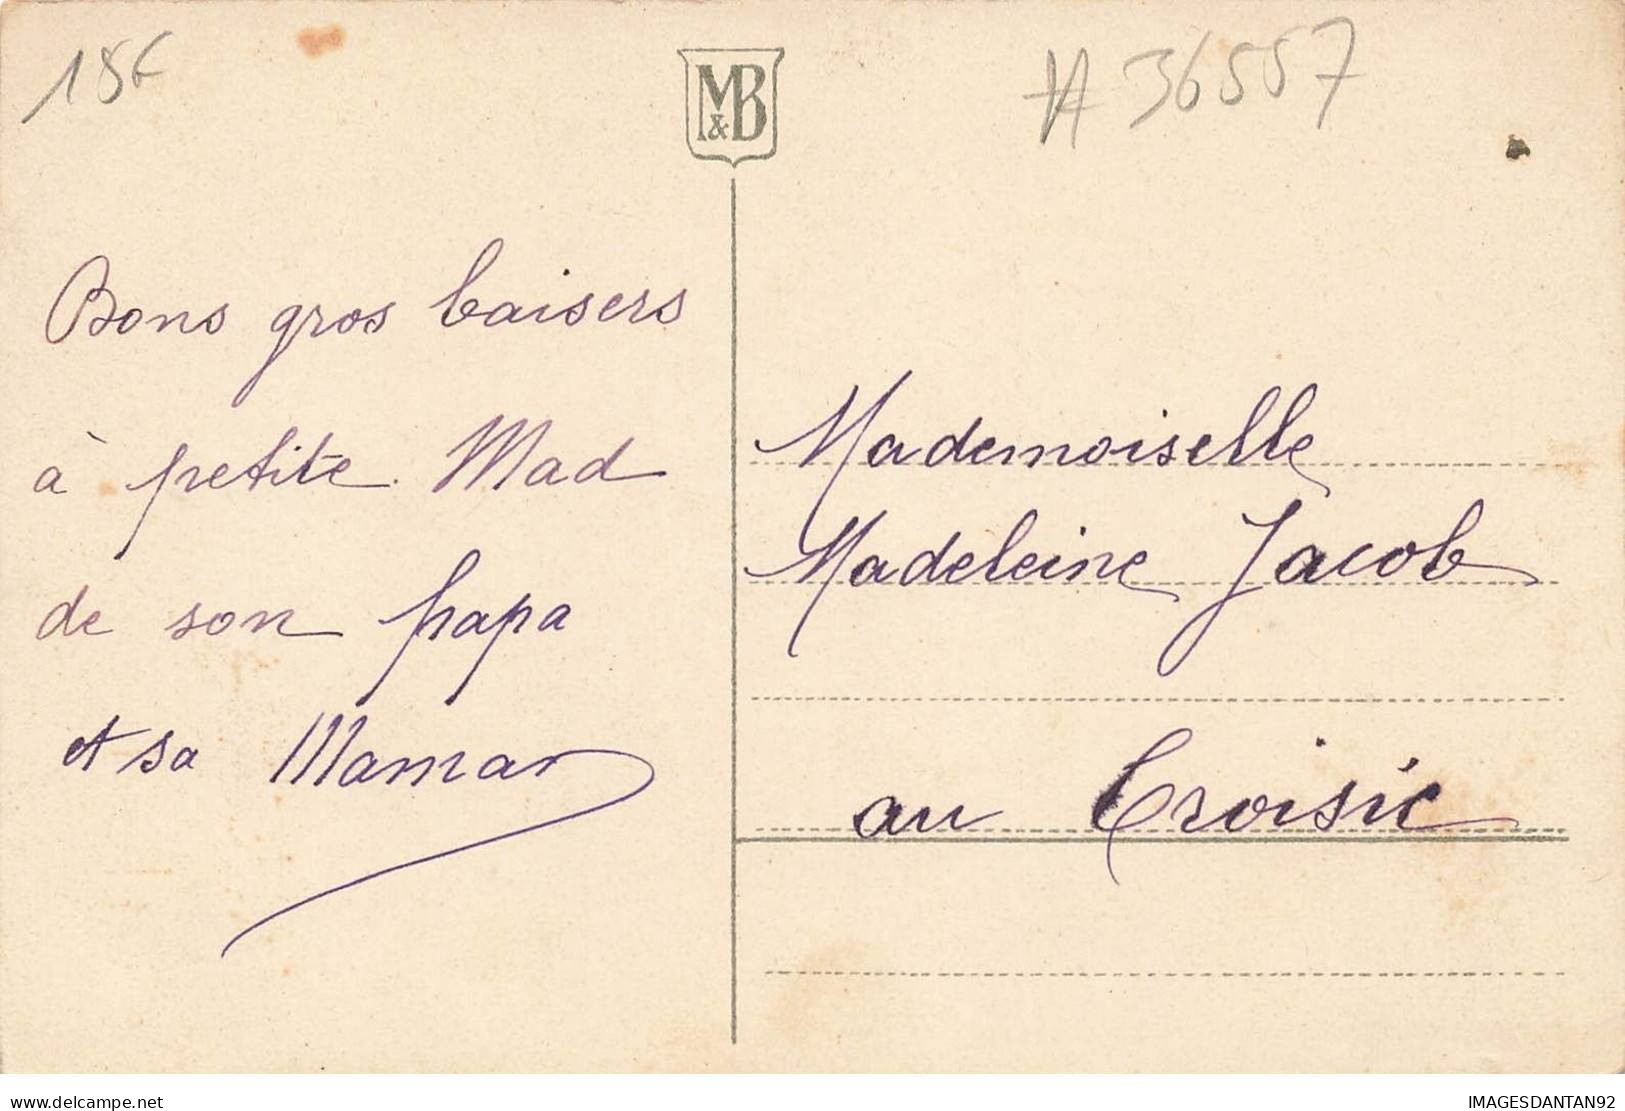 15€
M&B
#36557
Bons gros baisers
à petite Mad
de son papa
et sa Maman
Mademoiselle
Madeleine Jacob
au Croisic
www.delcampe.net
IMAGESDANTAN92